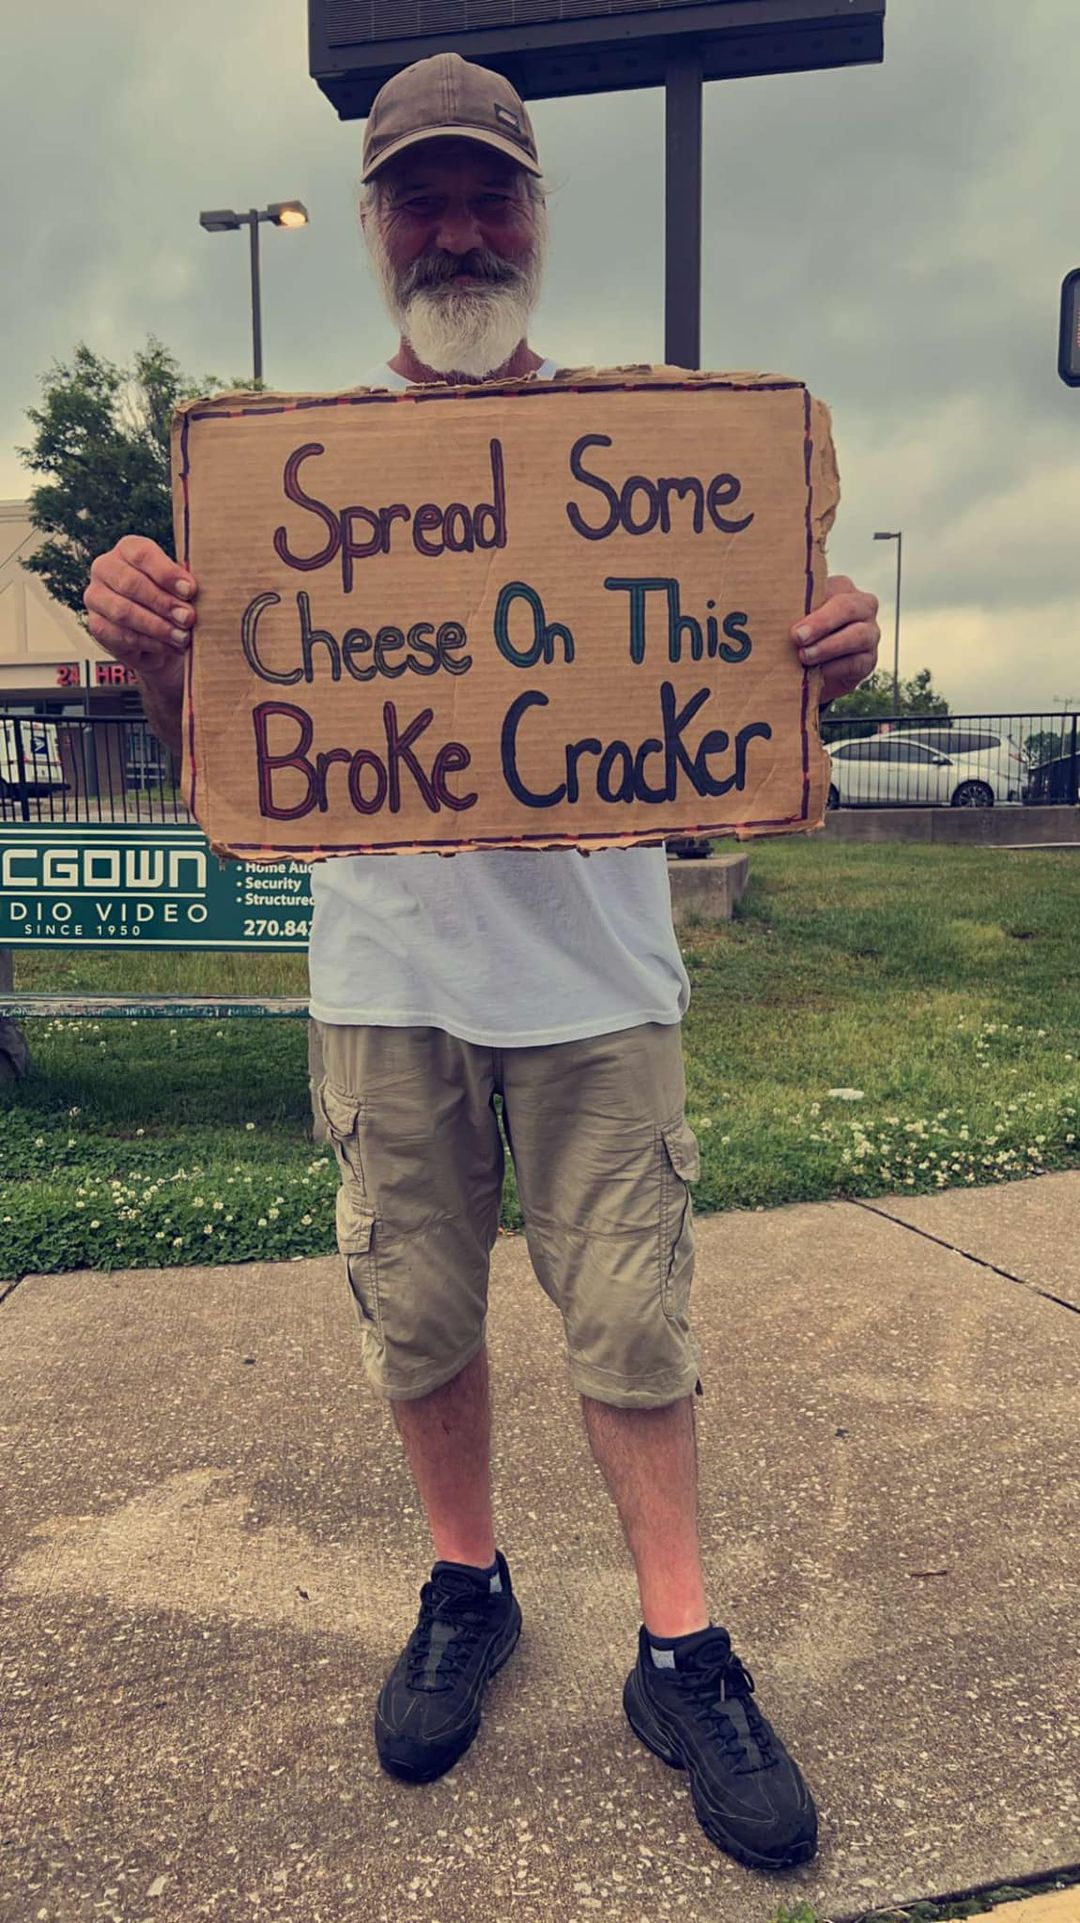 Spread Some
Cheese On This
Broke Cracker
24 HR
CGOWN
DIO VIDEO
SINCE 1950
• Home Au
• Security
• Structured
270.84